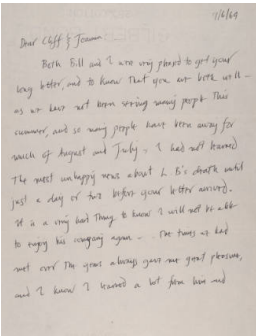 9/6/69
Dear Cliff & Joanna
Both Bill and I were very pleased to get your
long letter, and to know that you are both well –
as we have not been seeing many people this
summer, and so many people have been away for
much of August and July. I had not learned
the most unhappy news about L. B's death until
just a day or two before your letter arrived.
It is a very sad thing to know I will not be able
to enjoy his company again – . The times we had
met over the years always gave me great pleasure,
and I know I learned a lot from him and